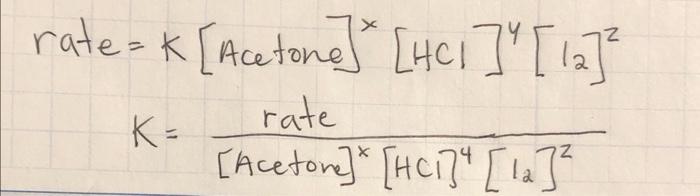 rate = K [Acetone]^x [HCl]^y [I2]^z
K = rate
[Acetone]^x [HCl]^y [I2]^z